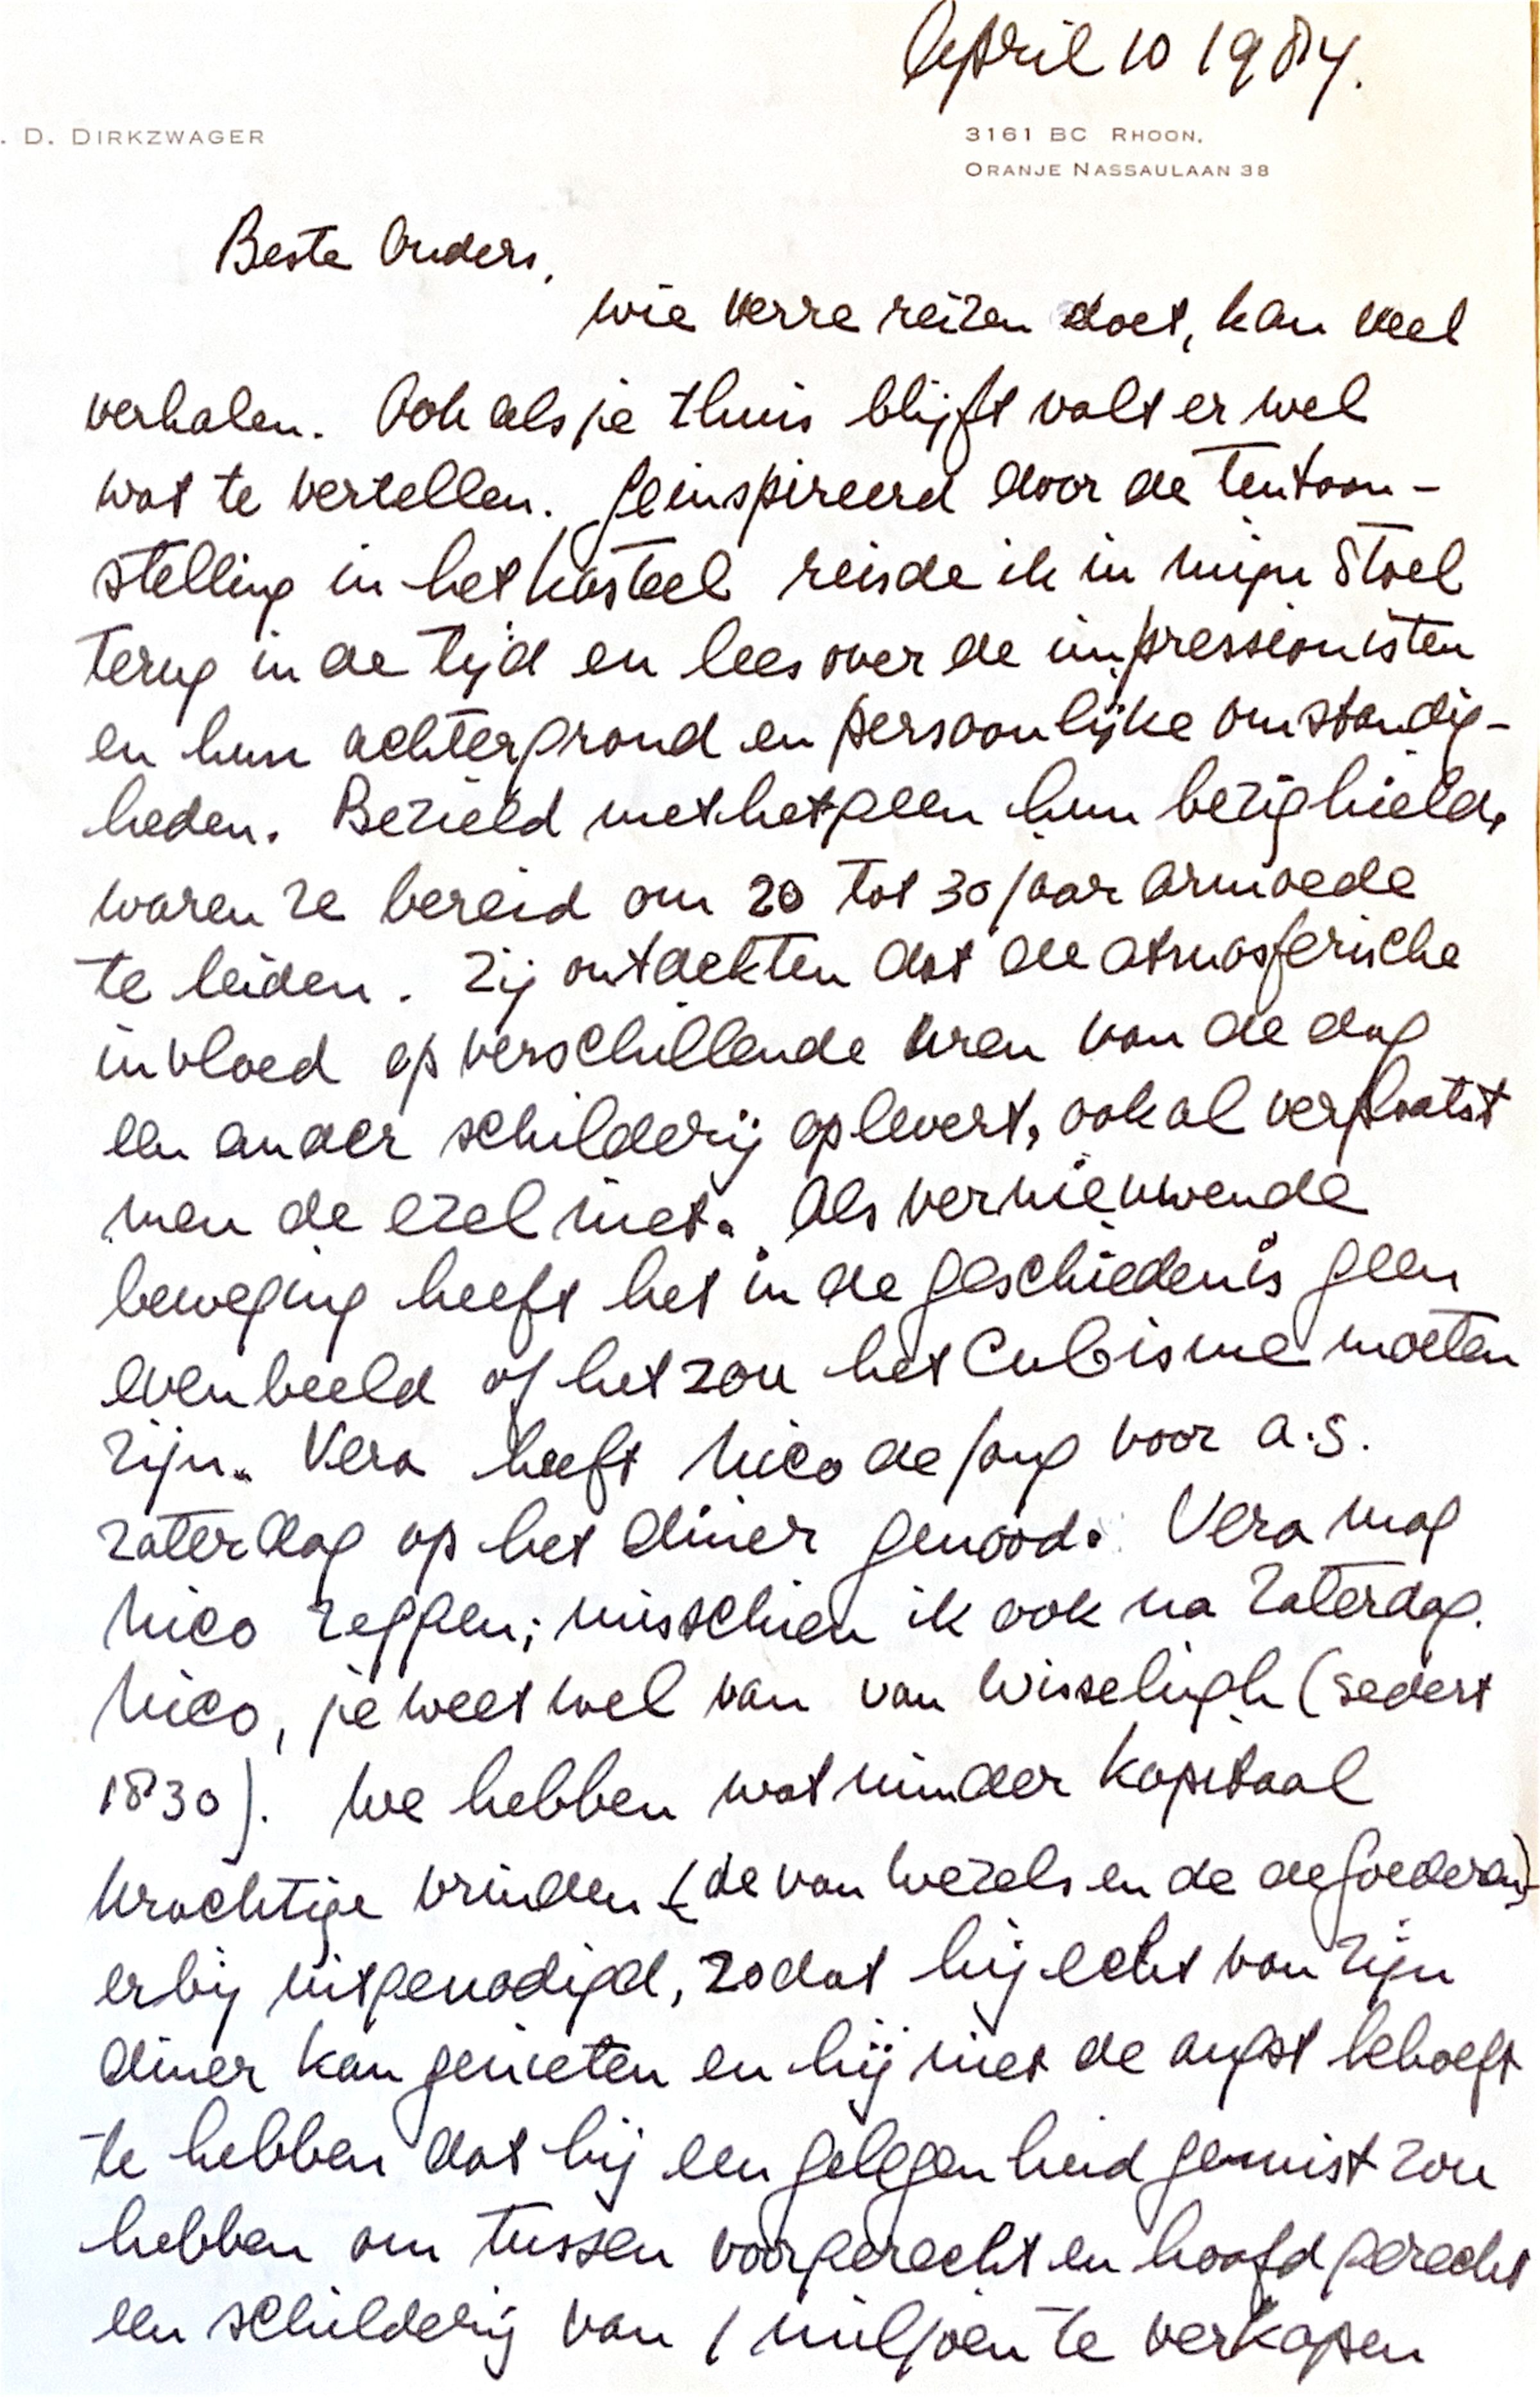 April 10 1984.
. D. DIRKZWAGER
3161 BC RHOON.
ORANJE NASSAULAAN 38
Beste Ouders,
wie verre reizen doet, kan veel
verhalen. Ook als je thuis blijft valt er wel
wat te vertellen. Geinspireerd door de tentoon-
stelling in het kasteel reisde ik in mijn stoel
terug in de tijd en lees over de impressionisten
en hun achtergrond en persoonlijke omstandig-
heden. Bezield met hetgeen hun bezig hield,
waren ze bereid om 20 tot 30 jaar armoede
te leiden. Zij ontdekten dat de atmosferische
invloed op verschillende uren van de dag
een ander schilderij oplevert, ook al verplaatst
men de ezel niet. Als vernieuwende
beweging heeft het in de geschiedenis geen
evenbeeld of het zou het Cubisme moeten
zijn. Vera heeft Nico de Jong voor a.s.
zaterdag op het diner genood. Vera mag
Nico zeggen; misschien ik ook na zaterdag.
Nico, je weet wel van van Wisselingh (sedert
1830). We hebben wat minder kapitaal
krachtige vrinden (de van Wezels en de de Goederen)
erbij uitgenodigd, zodat hij echt van zijn
diner kan genieten en hij niet de angst behoeft
te hebben dat hij een gelegenheid gemist zou
hebben om tussen voorgerecht en hoofdgerecht
een schilderij van 1 miljoen te verkopen